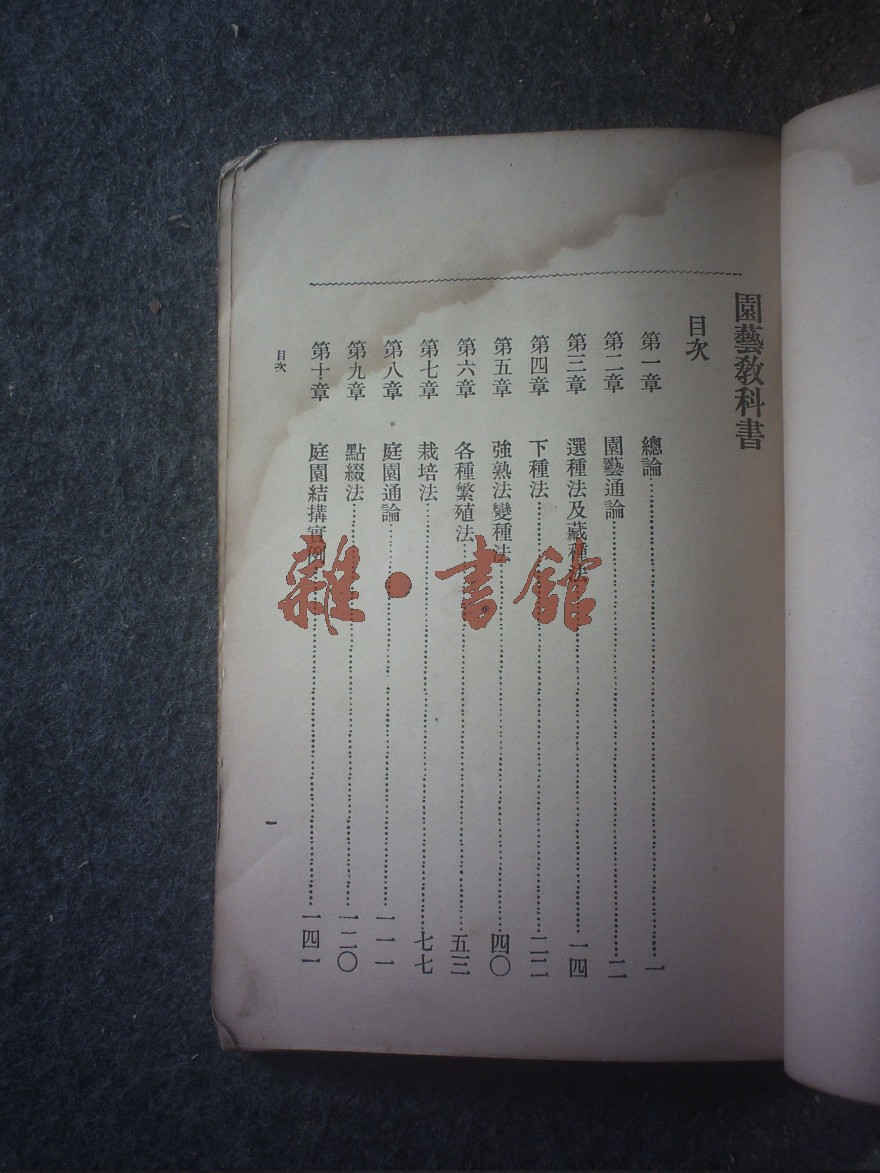 園藝敎科書
目次
第一章 總論 一
第二章 園藝通論 二
第三章 選種法及藏種法 一四
第四章 下種法 二二
第五章 強熟法變種法 四〇
第六章 各種繁殖法 五三
第七章 栽培法 七七
第八章 庭園通論 一一一
第九章 點綴法 一二〇
第十章 庭園結搆實例 一四一
目次
一
雜·書館